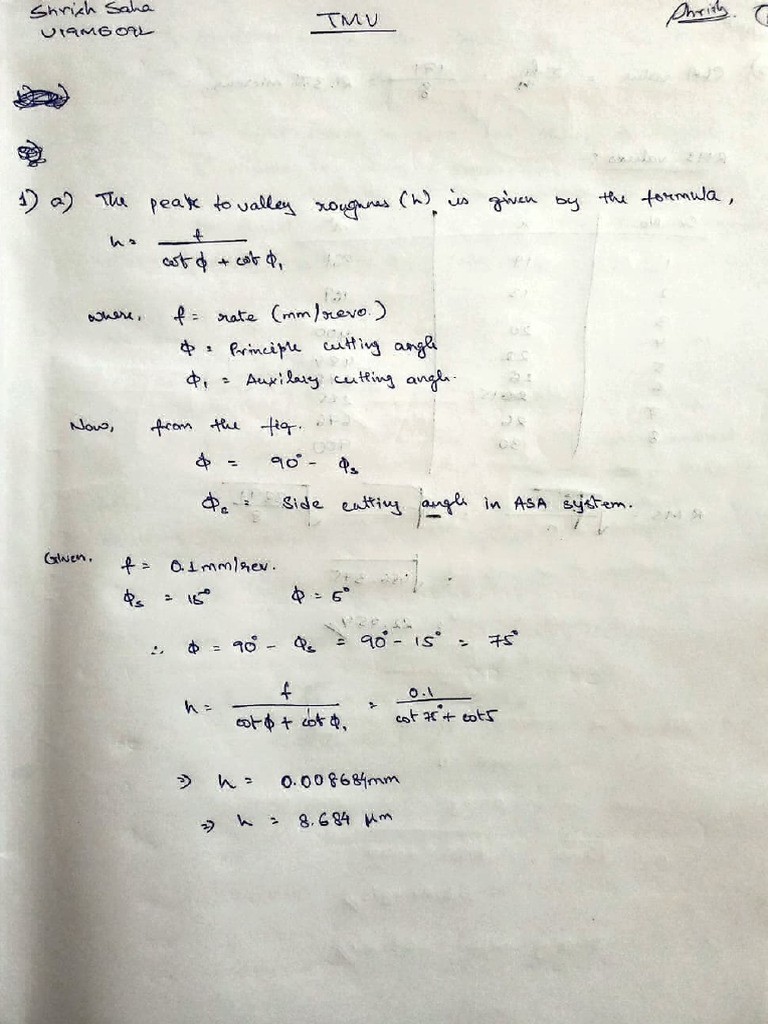 Shrish Saha
U19ME092
TMU
Shrish.
1) a) The peak to valley rougness (h) is given by the formula,
h = f / cot ϕ + cot ϕ₁
where, f = rate (mm/revo.)
ϕ = Principle cutting angle
ϕ₁ = Auxilary cutting angle.
Now, from the fig.
ϕ = 90° - ϕₛ
ϕₛ = Side cutting angle in ASA system.
Given, f = 0.1mm/rev.
ϕₛ = 15° ϕ = 5°
∴ ϕ = 90° - ϕₛ = 90° - 15° = 75°
h = f / cot ϕ + cot ϕ₁ = 0.1 / cot 75° + cot5
⇒ h = 0.008684mm
⇒ h = 8.684 μm